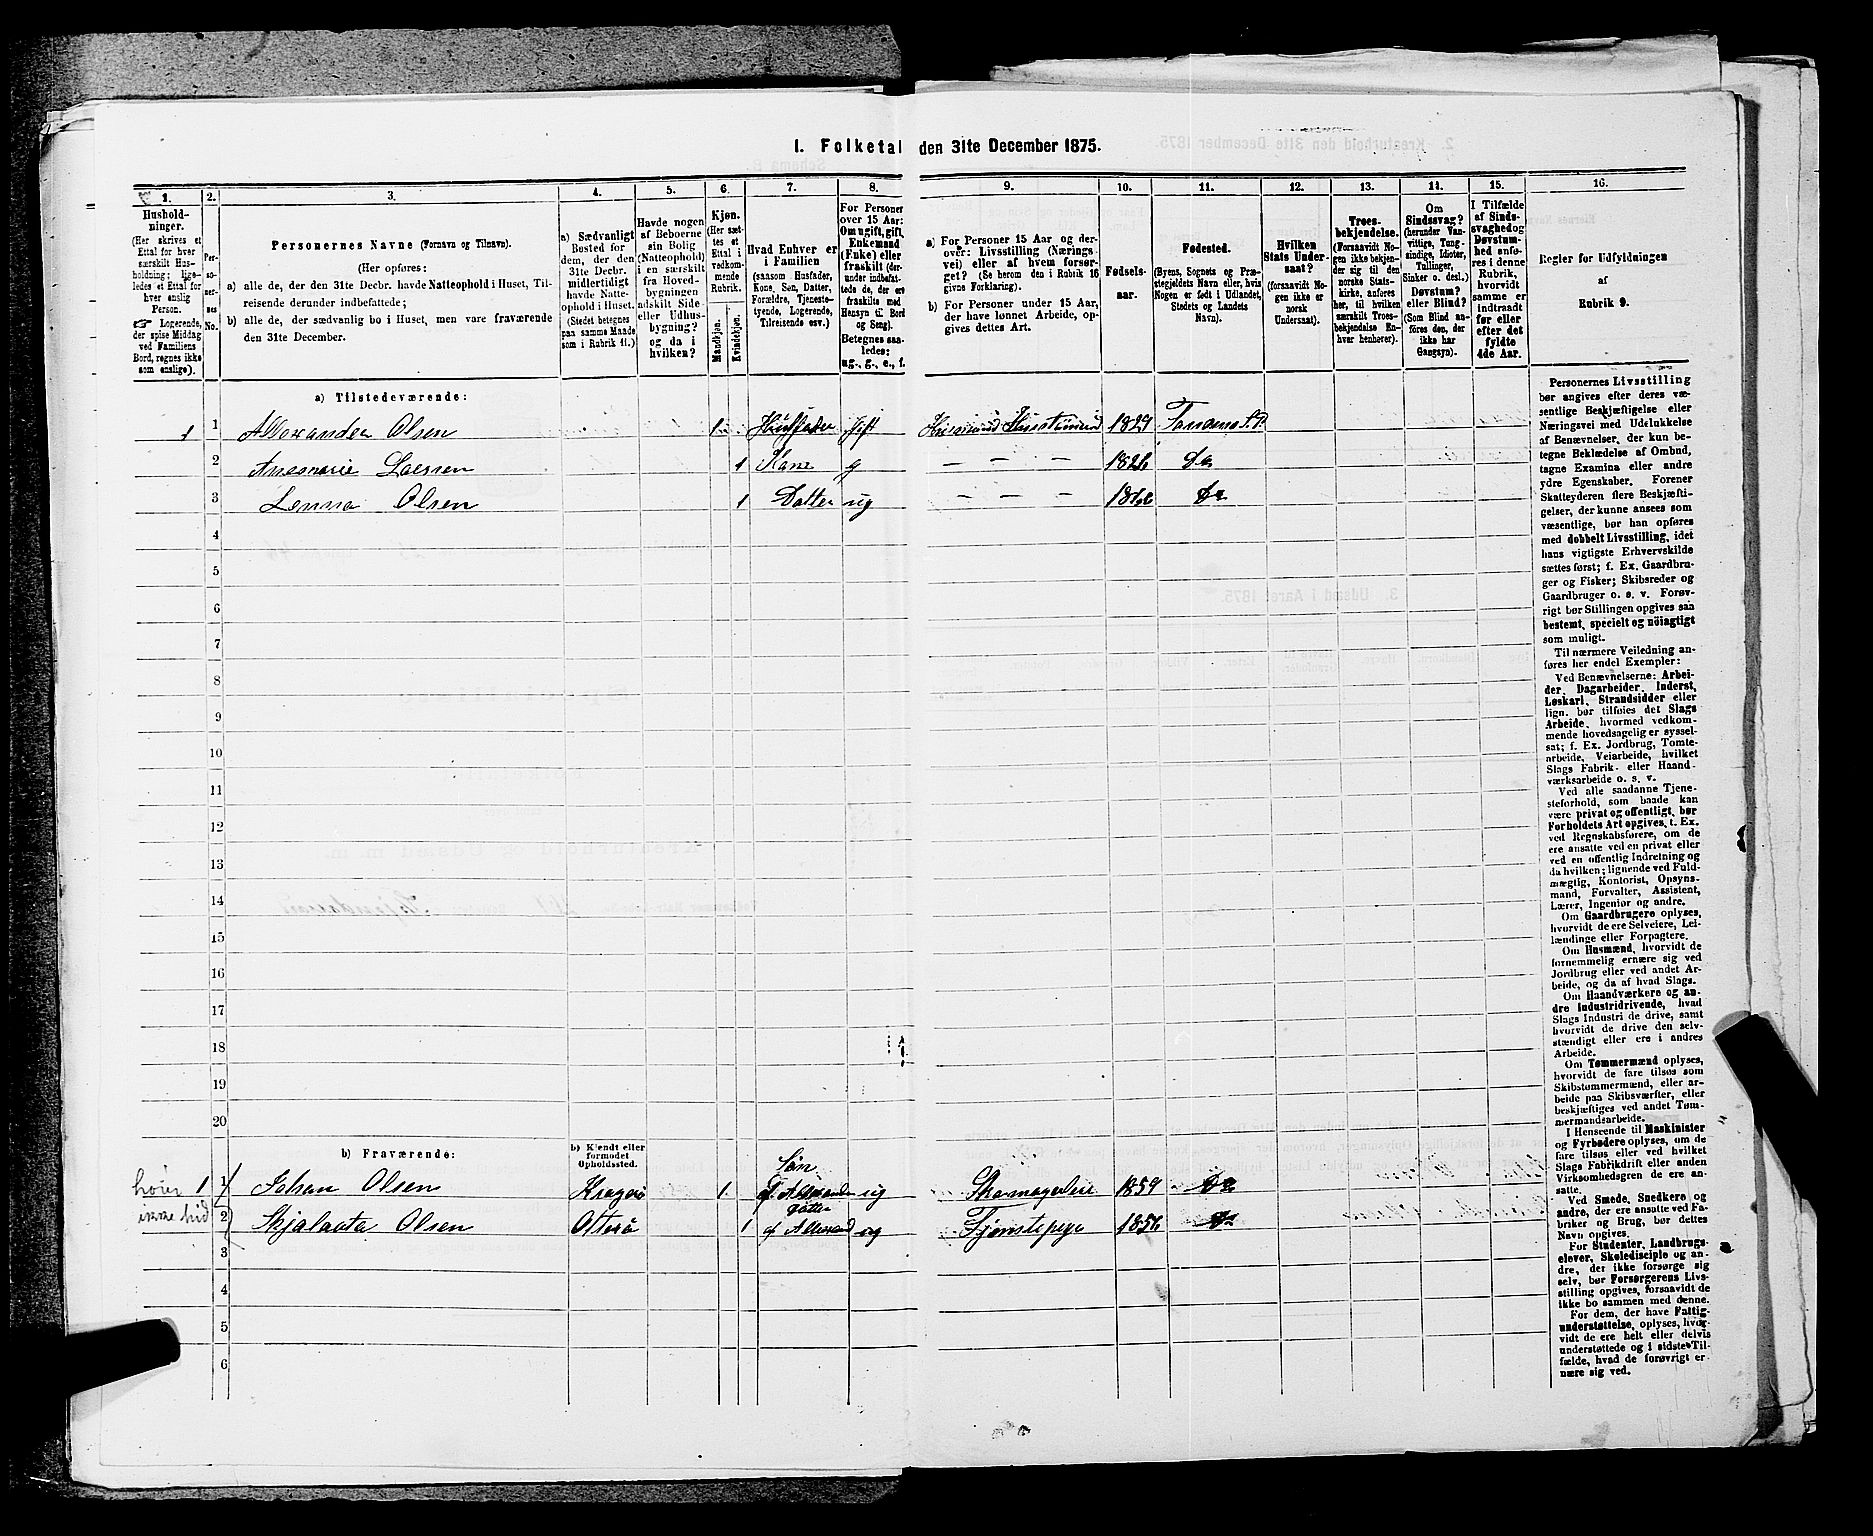 1. Folketal den 31te December 1875.
1. 2. 3. 4. 5. 6. 7. 8. 9. 10. 11. 12. 13. 14. 15. 16.
Husholdninger.
(Her skrives et
Ettal for hver
særskilt Husholdning;
ligeledes et Ettal for
hver enslig
Person.
Logerende,
der spise Middag
ved Familiens
Bord, regnes ikke
som enslige).
Personernes No.
Personernes Navne (Fornavn og Tilnavn).
(Her opføres:
a) alle de, der den 31te Decbr. havde Natteophold i Huset, Tilreisende derunder indbefattede;
b) alle de, der sædvanlig bo i Huset, men vare fraværende
den 31te December.
a) Sædvanligt
Bosted for
dem, der den
31te Decbr.
midlertidigt
havde Natteophold i Huset.
(Stedet betegnes
paa samme Maade
som i Rubrik 11.)
Havde nogen
af Beboerne
sin Bolig
(Natteophold)
i en særskilt
fra Hovedbygningen
adskilt Side-
eller Udhusbygning?
og da i
hvilken?
Kjøn.
(Her sættes et
Ettal i
vedkommende
Rubrik.
Mandkjøn.
Kvindekjøn.
Hvad Enhver er
i Familien
(saasom Husfader,
Kone, Søn, Datter,
Forældre, Tjenestetyende, Logerende,
Tilreisende osv.)
For Personer
over 15 Aar:
Om ugift, gift,
Enkemand
(Enke) eller
fraskilt (derunder indbefattede, de, der ere
fraskilte med
Hensyn til Bord
og Seng).
Betegnes saaledes:
ug., g., e., f.
a) For Personer 15 Aar og derover: Livsstilling (Næringsvei) eller af hvem forsørget? (Se herom den i Rubrik 16
givne Forklaring).
b) For Personer under 15 Aar,
der have lønnet Arbeide, opgives dettes Art.
Fødselsaar.
Fødested.
(Byens, Sognets og Præstegjeldets Navn eller, hvis
Nogen er født i Udlandet,
Stedets og Landets
Navn).
Hvilken
Stats Undersaat?
(forsaavidt Nogen ikke er
norsk
Undersaat).
Troesbekjendelse.
(Forsaavidt Nogen ikke bekjender sig til den
norske Statskirke, anføres
her, til hvilken
særskilt Troesbekjendelse Enhver henhører).
Om
Sindssvag?
(herunder Vanvittige, Tungsindige, Idioter,
Tullinger,
Sinker o. desl.)
Døvstum?
eller Blind?
(Som Blind anføres den, der
ikke har
Gangsyn).
I Tilfælde
af Sindssvaghed og
Døvstumhed anføres i denne
Rubrik,
hvorvidt
samme er
indtraadt
før eller
efter det
fyldte
4de Aar.
Regler for Udfyldningen
af
Rubrik 9.
a) Tilstedeværende:
1 1 Allexander Olsen 1 Husfader gift Husmand 1829
2 Anemarie Larsen 1 Kone g – – – 1826 do
3 Lenna Olsen 1 Datter ug – – – do
4
5
6
7
8
9
10
11
12
13
14
15
16
17
18
19
20
b) Fraværende:
b) Kjendt eller
formodet
Opholdssted.
1 1 Johan Olsen Kragerø 1 Søn af Allexander ug 1859 do
2 Olsen Atterø 1 datter af Allexand ug 1856 do
hører
ikke hid
3
4
5
6
Personernes Livsstilling
bør angives efter deres væsentlige Beskjæftigelse eller
Næringsvei med Udelukkelse
af Benævnelser, der kun betegne Beklædelse af Ombud,
tagne Examina eller andre
ydre Egenskaber. Forener
Skatteyderen flere Beskjæftigelser, der kunne ansees som
væsentlige, bør han opføres
med dobbelt Livsstilling, idet
hans vigtigste Erhvervskilde
sættes først; f. Ex. Gaardbruger og Fisker; Skibsreder og
Gaardbruger o. s. v. Forøvrigt bør Stillingen opgives saa
bestemt, specielt og nöiagtigt
som muligt.
Til nærmere Veiledning anføres her endel Exempler:
Ved Benævnelserne: Arbeider, Dagarbeider, Inderst,
Løskarl, Strandsidder eller
lign. bør tilføies det Slags
Arbeide, hvormed vedkommende hovedsagelig er sysselsat; f. Ex. Jordbrug, Tomtearbeide, Veiarbeide, hvilket
Slags Fabrik- eller Haandværksarbeide o. s. v.
Ved alle saadanne Tjenesteforhold, som baade kan
være privat og offentligt, bør
Forholdets Art opgives, t. Ex.
ved Regnskabsførere, om de
ere ansatte ved en privat eller
ved en offentlig Indretning og
da hvilken; lignende ved Fuldmægtig, Kontorist, Opsynsmand, Forvalter, Assistent,
Lærer, Ingeniør og andre.
Om Gaardbrugere oplyses,
hvorvidt de ere Selveiere, Leilændinge eller Forpagtere.
Om Husmænd, hvorvidt de
fornemmelig ernære sig ved
Jordbrug eller ved andet Arbeide, og da af hvad Slags.
Om Haandværkere og andre Industridrivende, hvad
Slags Industri de drive, samt
hvorvidt de drive den selvstændigt eller ere i andres
Arbeide.
Om Tømmermænd oplyses,
hvorvidt de fare tilsøs som
Skibstømmermænd, eller arbeide paa Skibsværfter, eller
beskjæftiges ved andet Tømmermandsarbeide.
I Henseende til Maskinister
og Fyrbødere oplyses, om de
fare tilsøs eller ved hvilket
Slags Fabrikdrift eller anden
Virksomhedsgren de ere ansatte.
Ved Smede, Snedkere og
andre, der ere ansatte ved Fabriker og Brug, bør dettes
Navn opgives.
For Studenter, Landbrugselever, Skoledisciple og andre, der ikke forsørge sig
selv, bør Forsørgerens Livsstilling opgives, forsaavidt de
ikke bo sammen med denne.
For dem, der have Fattigunderstøttelse, oplyses, hvorvidt de ere helt eller delvis
understøttede og i sidste Tilfælde, hvad de forøvrigt ernære sig ved.